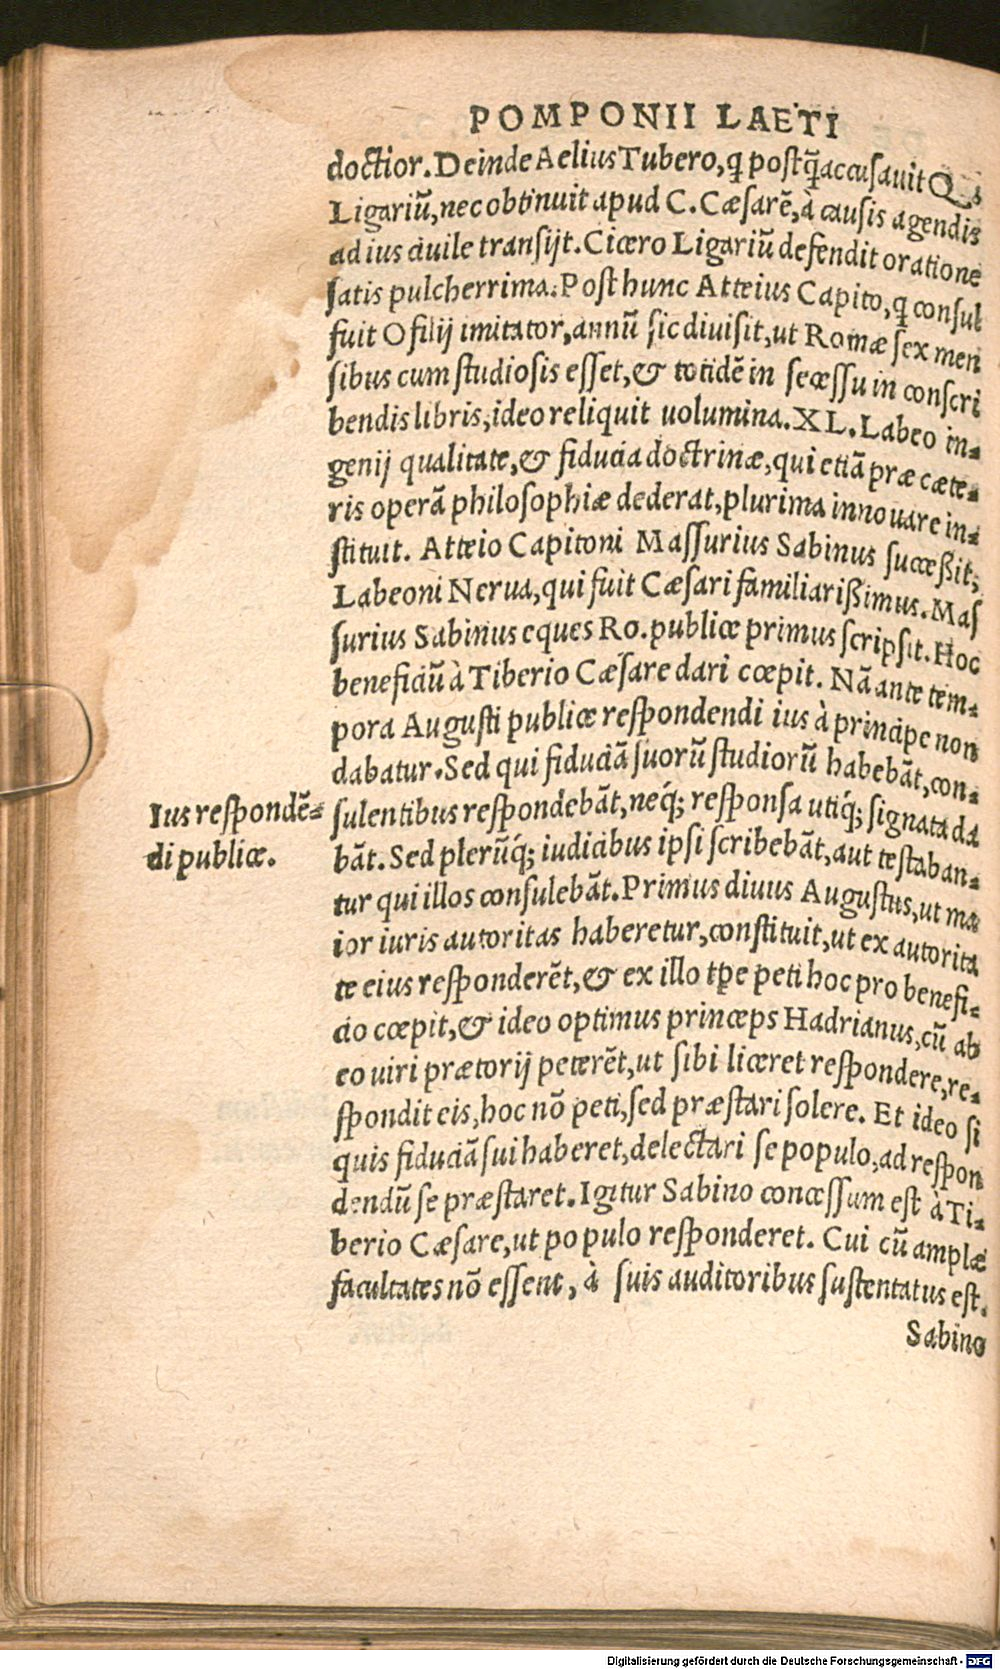 POMPONII LAETI
doctior. Deinde Aelius Tubero, q̃ postq̃ accusauit Q.
Ligariũ, nec obtinuit apud C. Cæsarẽ, à causis agendis
ad ius ciuile transijt. Cicero Ligariũ defendit oratione
satis pulcherrima. Post hunc Atteius Capito, q̃ consul
fuit Ofilij imitator, annũ sic diuisit, ut Romæ sex men
sibus cum studiosis esset, & totidẽ in secessu in conscri
bendis libris, ideo reliquit uolumina. XL. Labeo in-
genij qualitate, & fiducia doctrinæ, qui etiã præ cæte-
ris operã philosophiæ dederat, plurima innouare in-
stituit. Atteio Capitoni Massurius Sabinus successit,
Labeoni Nerua, qui fuit Cæsari familiarissimus. Mas
surius Sabinus eques Ro. publice primus scripsit. Hoc
beneficiũ à Tiberio Cæsare dari cœpit. Nã ante tem-
pora Augusti publice respondendi ius à principe non
dabatur. Sed qui fiduciã suorũ studiorũ habebãt, con-
Ius respondẽ-
di publice.
sulentibus respondebãt, neq́; responsa utiq́; signata da
bãt. Sed plerũq́; iudicibus ipsi scribebãt, aut testaban-
tur qui illos consulebãt. Primus diuus Augustus, ut ma
ior iuris autoritas haberetur, constituit, ut ex autorita
te eius responderẽt, & ex illo tp̃e peti hoc pro benefi-
cio cœpit, & ideo optimus princeps Hadrianus, cũ ab
eo uiri prætorij peterẽt, ut sibi liceret respondere, re-
spondit eis, hoc nõ peti, sed præstari solere. Et ideo si
quis fiduciã sui haberet, delectari se populo, ad respon
dendũ se præstaret. Igitur Sabino concessum est à Ti-
berio Cæsare, ut populo responderet. Cui cũ amplæ
facultates nõ essent, à suis auditoribus sustentatus est.
Sabino
Digitalisierung gefördert durch die Deutsche Forschungsgemeinschaft - DFG